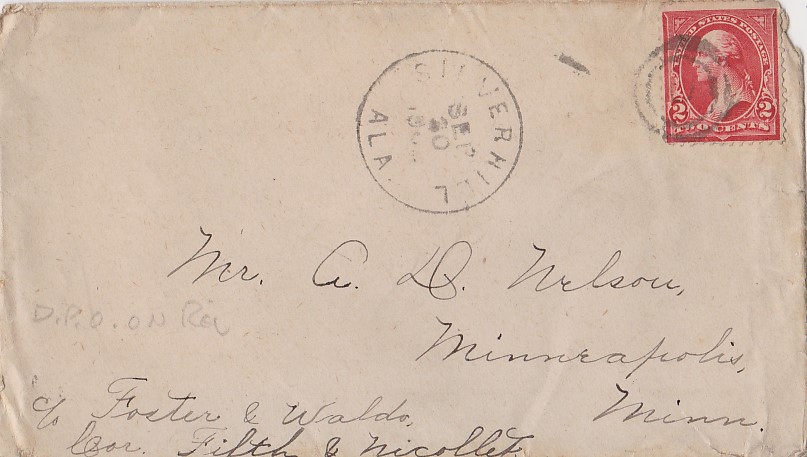 UNITED STATES POSTAGE
2 2
TWO CENTS
SILVERHILL
SEP
ALA.
Mr. A. D. Nelson,
Minneapolis,
Minn.
D.P.O. ON Rev.
c/o Foster & Waldo,
Cor. Fifth & Nicollet